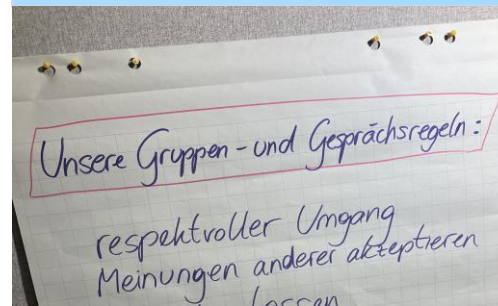 Unsere Gruppen- und Gesprächsregeln:
respektvoller Umgang
Meinungen anderer akzeptieren
lassen